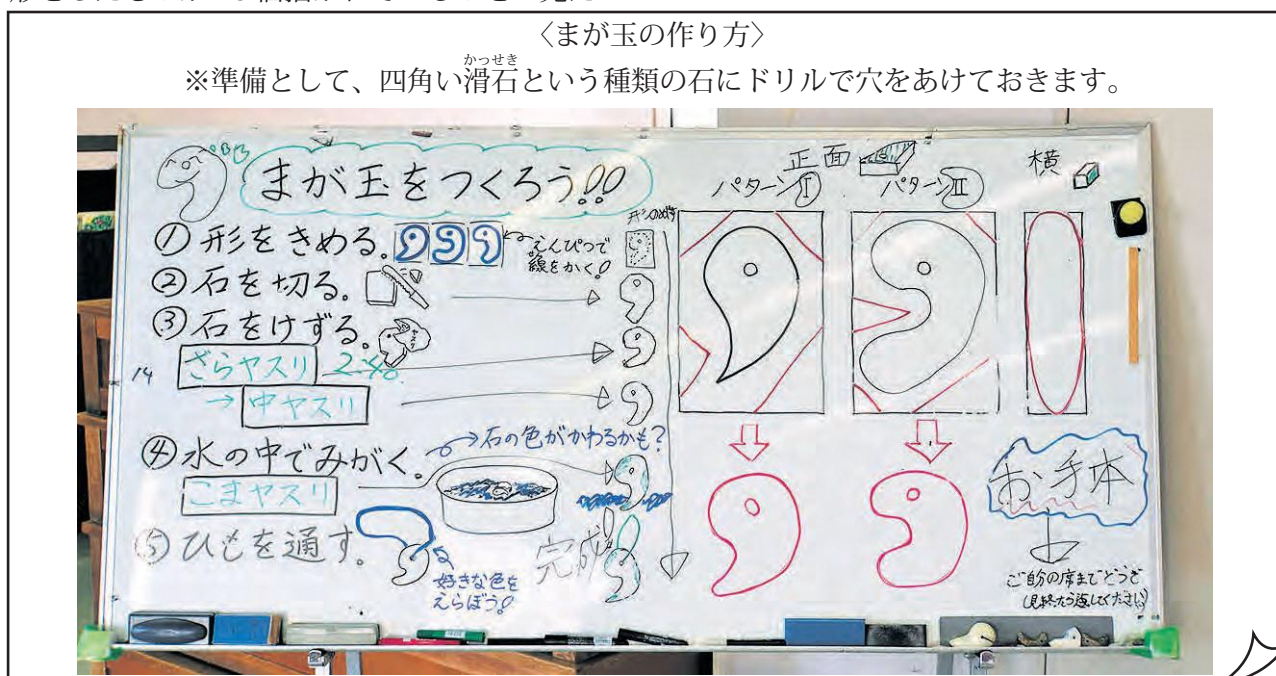 〈まが玉の作り方〉
※準備として、四角い滑石という種類の石にドリルで穴をあけておきます。
かっせき
まが玉をつくろう!!
①形をきめる。
えんぴつで
線をかく!
②石を切る。
③石をけずる。
ヤスリ
ざらヤスリ
240
14
→中ヤスリ
④水の中でみがく。
→石の色がかわるかも?
こまヤスリ
⑤ひもを通す。
好きな色を
えらぼう!
完成!
正面
パターンⅠ
パターンⅡ
横
お手本
ご自分の席までどうぞ
(見終たら返してください)